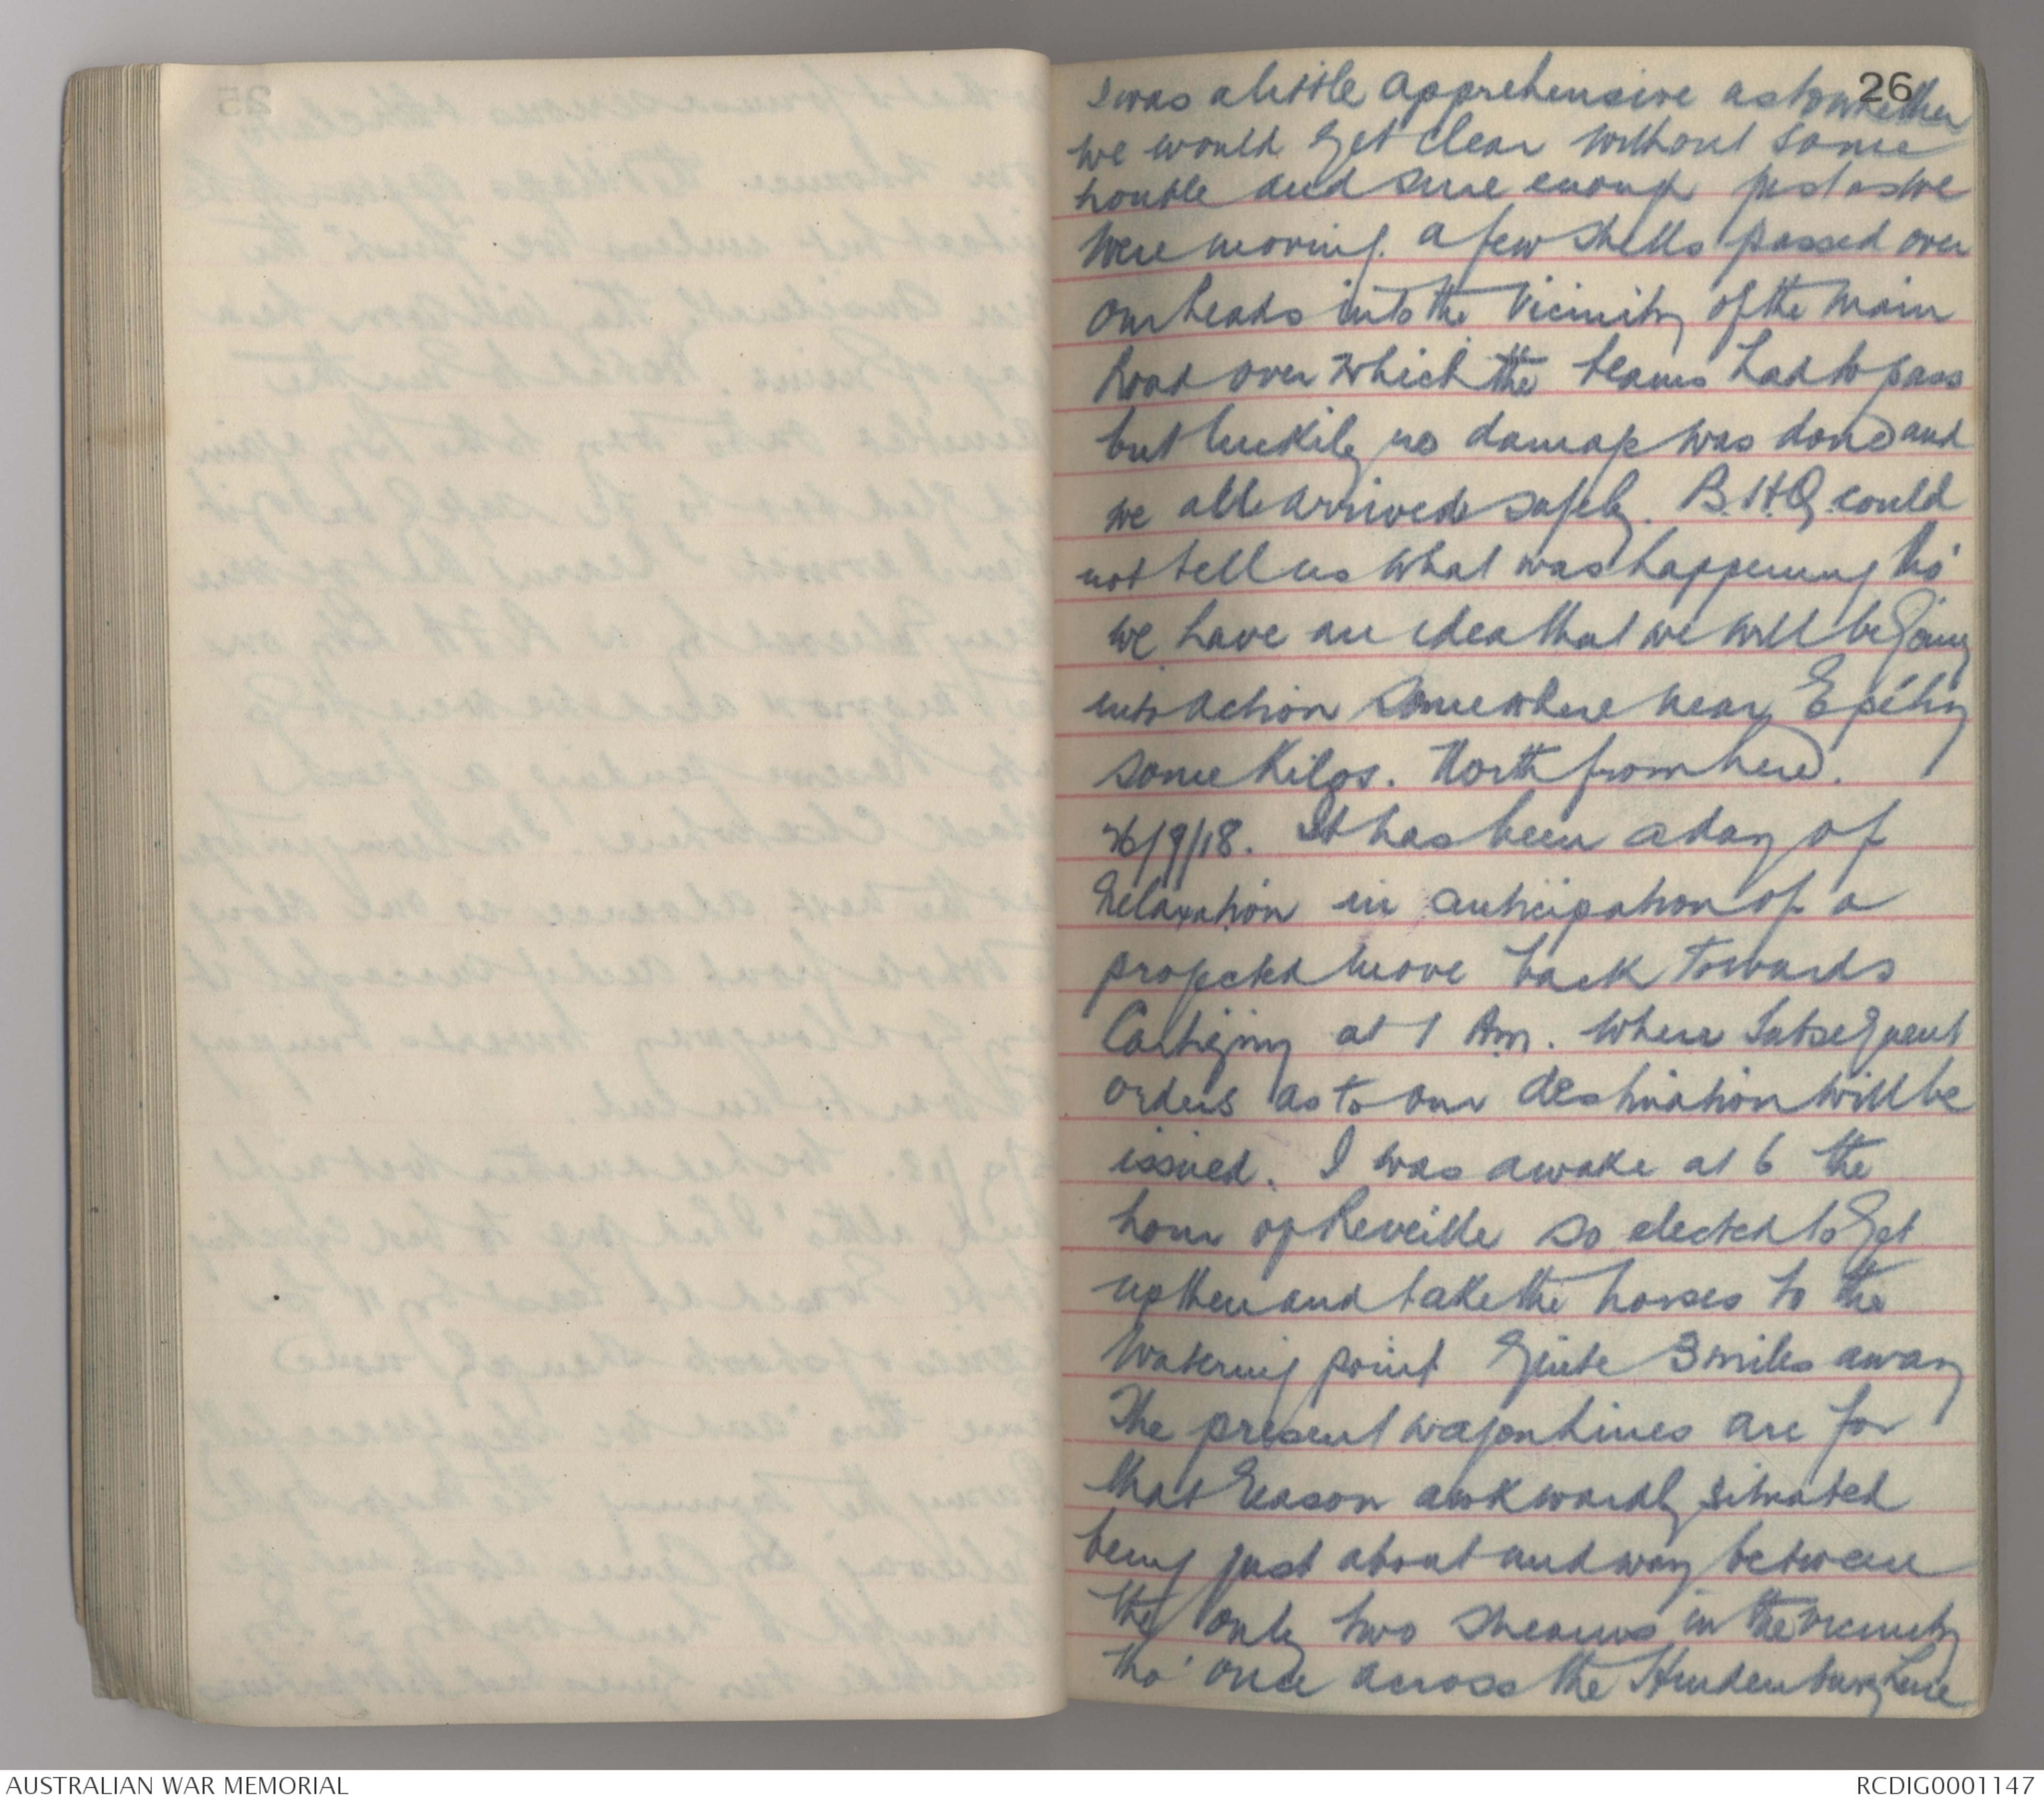 26
I was a little apprehensive as to whether
we would get clear without some
trouble and sure enough just as we
were moving a few shells passed over
our heads into the vicinity of the main
Road over which the teams had to pass
but luckily no damage was done and
we all arrived safely. B.H.Q. could
not tell us what was happening tho'
we have an idea that we will be going
into action somewhere near Epéhy
some Kilos. North from here.
26/9/18. It has been a day of
relaxation in anticipation of a
projected move back towards
Cartigny at 1 Am. where subsequent
orders as to our destination will be
issued. I was awake at 6 the
hour of Reveille so elected to get
up then and take the horses to the
watering point quite 3 miles away
The present wagon lines are for
that reason awkwardly situated
being just about midway between
the only two streams in the vicinity
tho' once across the Hindenburg Line
AUSTRALIAN WAR MEMORIAL
RCDIG0001147